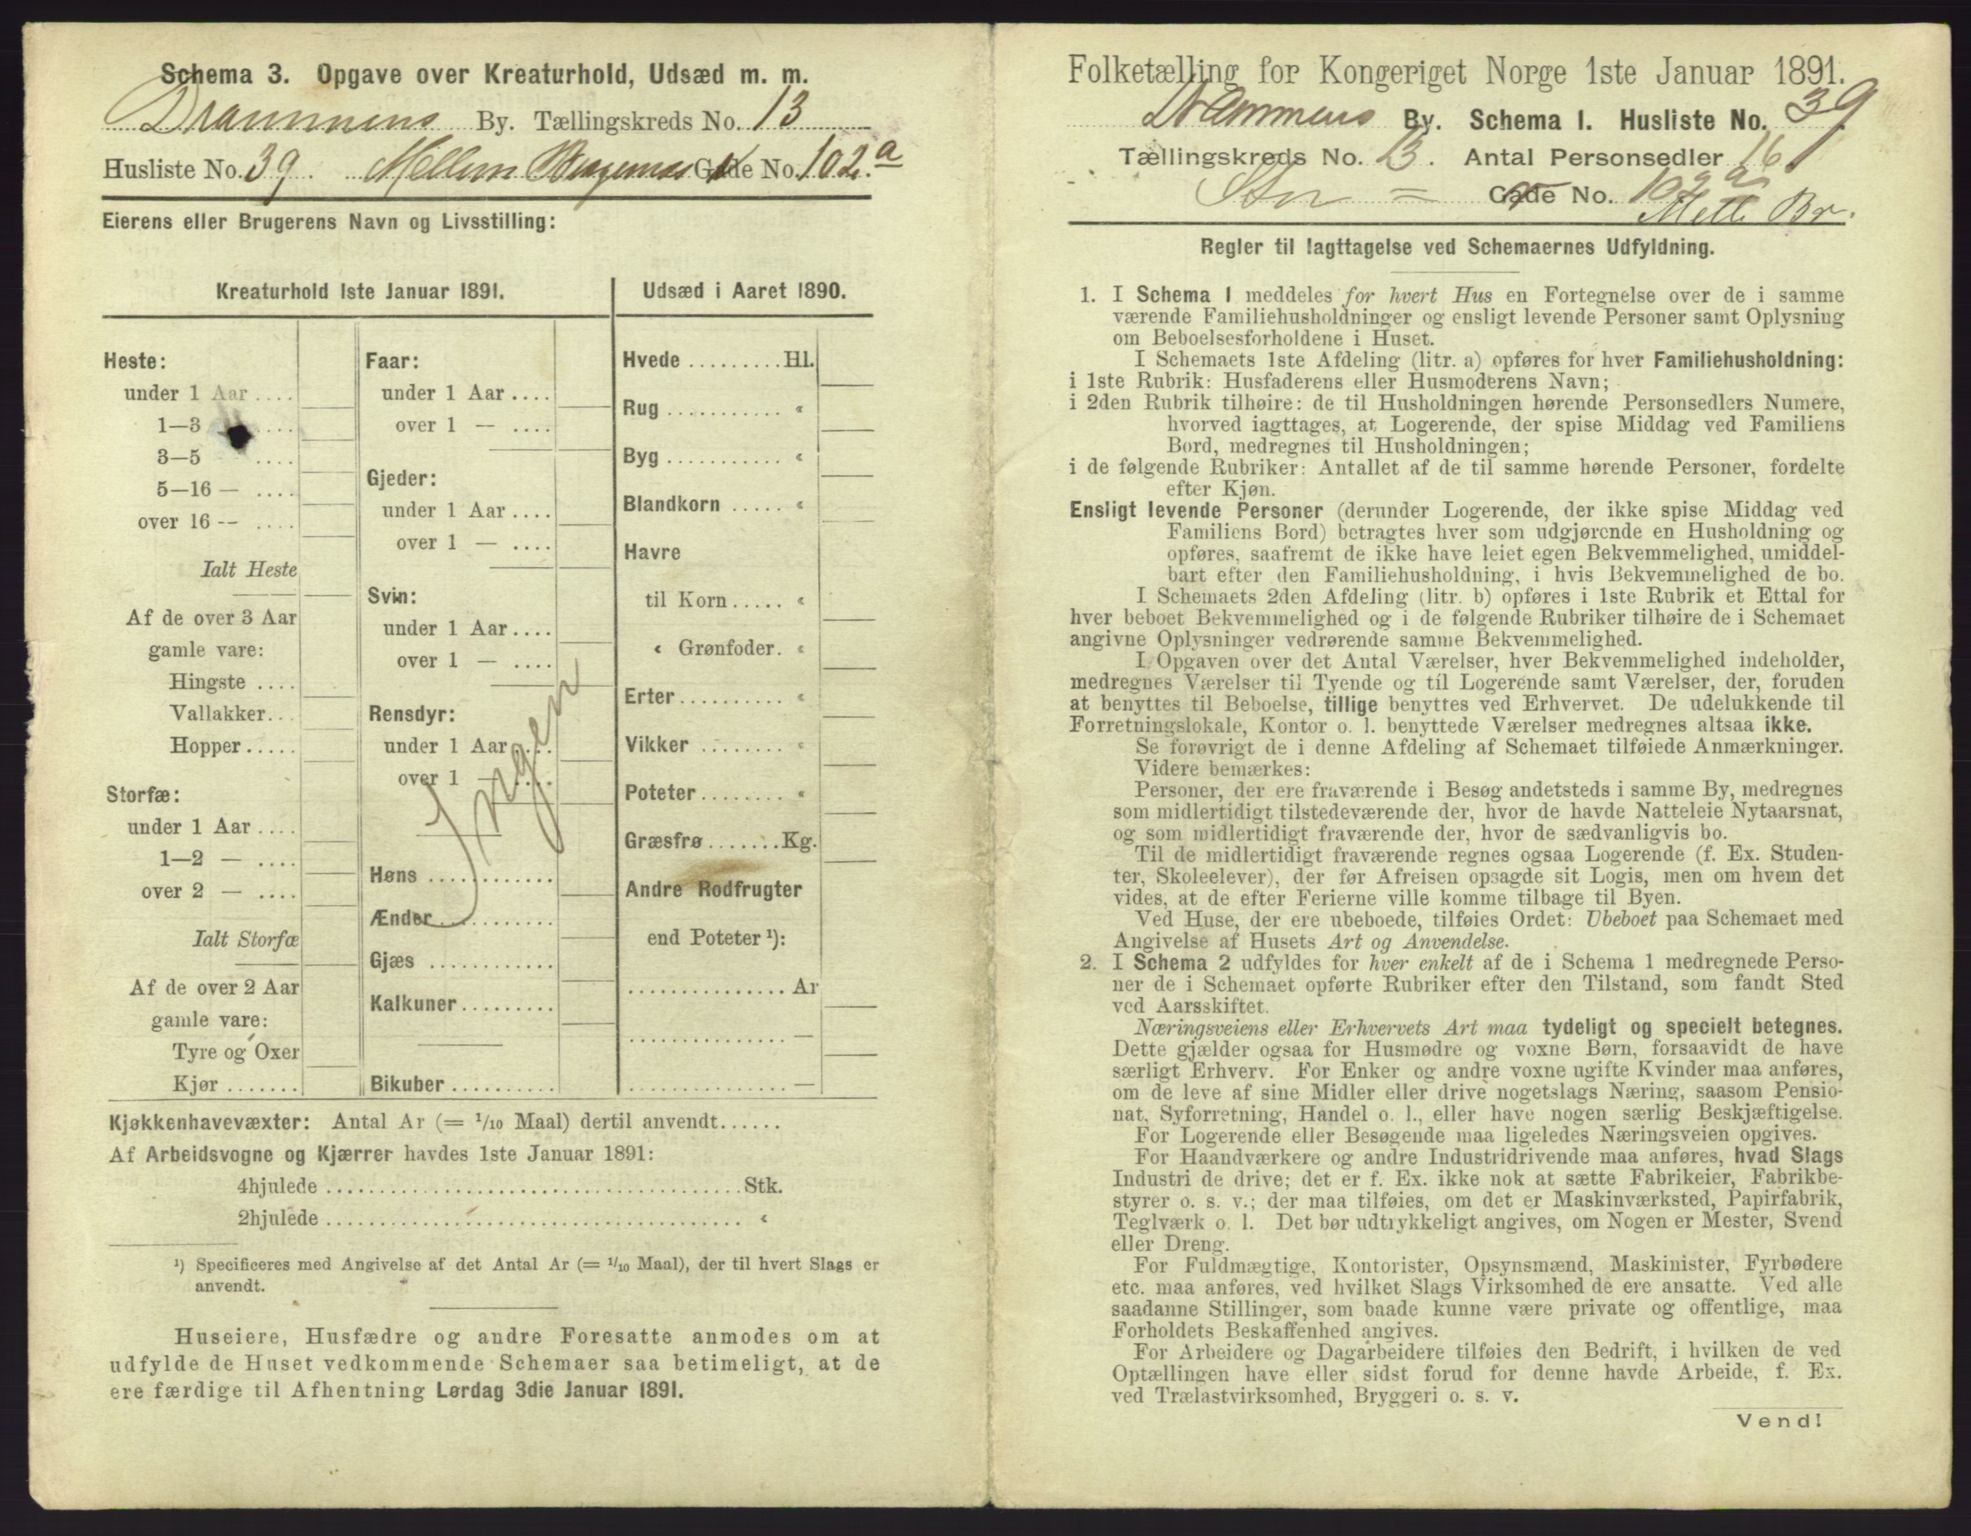 Schema 3. Opgave over Kreaturhold, Udsæd m. m.
Drammens By. Tællingskreds No. 13
Husliste No. 39. Mellem Bragernæs Gade No. 102.a
Eierens eller Brugerens Navn og Livsstilling:
Kreaturhold 1ste Januar 1891.
Heste:
under 1 Aar ....
1—3 ....
3—5 ....
5—16 — ....
over 16 -- ....
Ialt Heste
Af de over 3 Aar
gamle vare:
Hingste ....
Vallakker...
Hopper.....
Storfæ:
under 1 Aar ....
1—2 — ....
over 2 — ....
Ialt Storfæ
Af de over 2 Aar
gamle vare:
Tyre og Oxer
Kjør.......
Faar:
under 1 Aar ....
over 1 — ....
Gjeder:
under 1 Aar ....
over 1 — ....
Svin:
under 1 Aar ....
over 1 — ....
Rensdyr:
under 1 Aar ....
over 1 — ....
Ingen
Høns ............
Ænder..........
Gjæs ............
Kalkuner.........
Bikuber..........
Udsæd i Aaret 1890.
Hvede .........Hl.
Rug ........... «
Byg ........... «
Blandkorn ..... «
Havre
til Korn..... «
« Grønfoder. «
Erter ......... «
Vikker ........ «
Poteter........ «
Græsfrø.......Kg.
Andre Rodfrugter
end Poteter ¹):
............... Ar
............... —
............... —
Kjøkkenhavevæxter: Antal Ar (= 1/10 Maal) dertil anvendt......
Af Arbeidsvogne og Kjærrer havdes 1ste Januar 1891:
4hjulede ......................................Stk.
2hjulede ...................................... «
¹) Specificeres med Angivelse af det Antal Ar (= 1/10 Maal), der til hvert Slags er
anvendt.
Huseiere, Husfædre og andre Foresatte anmodes om at
udfylde de Huset vedkommende Schemaer saa betimeligt, at de
ere færdige til Afhentning Lørdag 3die Januar 1891.
Folketælling for Kongeriget Norge 1ste Januar 1891.
Drammens By. Schema I. Husliste No. 39
Tællingskreds No. 13. Antal Personsedler 16
Stor = Gade No. 102 a
Mell. Br.
Regler til Iagttagelse ved Schemaernes Udfyldning.
1. I Schema I meddeles for hvert Hus en Fortegnelse over de i samme
værende Familiehusholdninger og ensligt levende Personer samt Oplysning
om Beboelsesforholdene i Huset.
I Schemaets 1ste Afdeling (litr. a) opføres for hver Familiehusholdning:
i 1ste Rubrik: Husfaderens eller Husmoderens Navn;
i 2den Rubrik tilhøire: de til Husholdningen hørende Personsedlers Numere,
hvorved iagttages, at Logerende, der spise Middag ved Familiens
Bord, medregnes til Husholdningen;
i de følgende Rubriker: Antallet af de til samme hørende Personer, fordelte
efter Kjøn.
Ensligt levende Personer (derunder Logerende, der ikke spise Middag ved
Familiens Bord) betragtes hver som udgjørende en Husholdning og
opføres, saafremt de ikke have leiet egen Bekvemmelighed, umiddel-
bart efter den Familiehusholdning, i hvis Bekvemmelighed de bo.
I Schemaets 2den Afdeling (litr. b) opføres i 1ste Rubrik et Ettal for
hver beboet Bekvemmelighed og i de følgende Rubriker tilhøire de i Schemaet
angivne Oplysninger vedrørende samme Bekvemmelighed.
I Opgaven over det Antal Værelser, hver Bekvemmelighed indeholder,
medregnes Værelser til Tyende og til Logerende samt Værelser, der, foruden
at benyttes til Beboelse, tillige benyttes ved Erhvervet. De udelukkende til
Forretningslokale, Kontor o. l. benyttede Værelser medregnes altsaa ikke.
Se forøvrigt de i denne Afdeling af Schemaet tilføiede Anmærkninger.
Videre bemærkes:
Personer, der ere fraværende i Besøg andetsteds i samme By, medregnes
som midlertidigt tilstedeværende der, hvor de havde Natteleie Nytaarsnat,
og som midlertidigt fraværende der, hvor de sædvanligvis bo.
Til de midlertidigt fraværende regnes ogsaa Logerende (f. Ex. Studen-
ter, Skoleelever), der før Afreisen opsagde sit Logis, men om hvem det
vides, at de efter Ferierne ville komme tilbage til Byen.
Ved Huse, der ere ubeboede, tilføies Ordet: Ubeboet paa Schemaet med
Angivelse af Husets Art og Anvendelse.
2. I Schema 2 udfyldes for hver enkelt af de i Schema 1 medregnede Perso-
ner de i Schemaet opførte Rubriker efter den Tilstand, som fandt Sted
ved Aarsskiftet.
Næringsveiens eller Erhvervets Art maa tydeligt og specielt betegnes.
Dette gjælder ogsaa for Husmødre og voxne Børn, forsaavidt de have
særligt Erhverv. For Enker og andre voxne ugifte Kvinder maa anføres,
om de leve af sine Midler eller drive nogetslags Næring, saasom Pensio-
nat, Syforretning, Handel o. l., eller have nogen særlig Beskjæftigelse.
For Logerende eller Besøgende maa ligeledes Næringsveien opgives.
For Haandværkere og andre Industridrivende maa anføres, hvad Slags
Industri de drive; det er f. Ex. ikke nok at sætte Fabrikeier, Fabrikbe-
styrer o. s. v.; der maa tilføies, om det er Maskinværksted, Papirfabrik,
Teglværk o. l. Det bør udtrykkeligt angives, om Nogen er Mester, Svend
eller Dreng.
For Fuldmægtige, Kontorister, Opsynsmænd, Maskinister, Fyrbødere
etc. maa anføres, ved hvilket Slags Virksomhed de ere ansatte. Ved alle
saadanne Stillinger, som baade kunne være private og offentlige, maa
Forholdets Beskaffenhed angives.
For Arbeidere og Dagarbeidere tilføies den Bedrift, i hvilken de ved
Optællingen have eller sidst forud for denne havde Arbeide, f. Ex.
ved Trælastvirksomhed, Bryggeri o. s. v.
Vend!